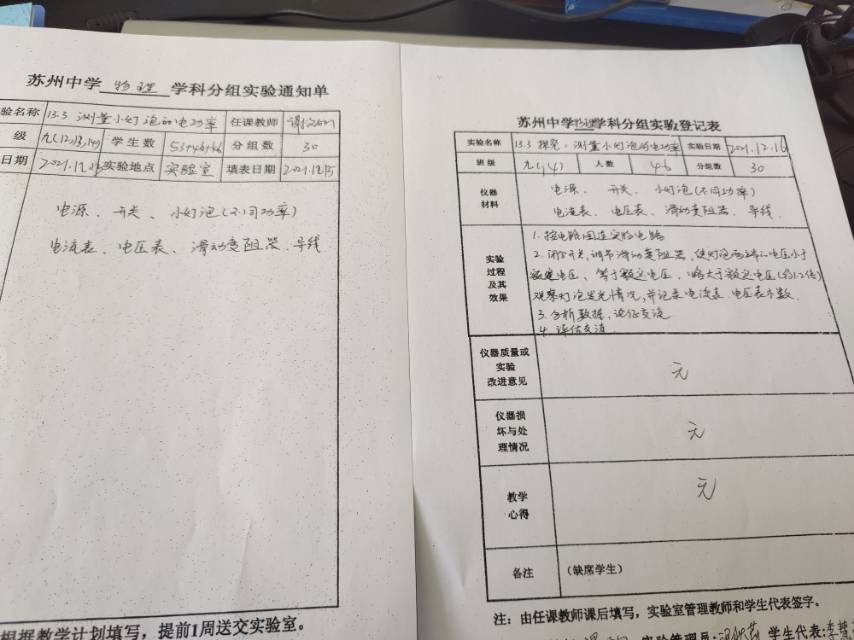 苏州中学 物理 学科分组实验通知单
验名称 13.3 测量小灯泡的电功率 任课教师
级 九(12,13,14) 学生数 53+46+46 分组数 30
日期 2021.12.15 实验地点 实验室 填表日期 2021.12.15
电源、开关、小灯泡(不同功率)
电流表、电压表、滑动变阻器、导线
根据教学计划填写，提前1周送交实验室。
苏州中学物理学科分组实验登记表
实验名称 13.3 探究：测量小灯泡的电功率 实验日期 2021.12.16
班级 九(14) 人数 46 分组数 30
仪器材料
电源、开关、小灯泡(不同功率)
电流表、电压表、滑动变阻器、导线
实验过程及其效果
1. 按电路图连实验电路
2. 闭合开关，调节滑动变阻器，使灯泡两端的电压小于
额定电压、等于额定电压、略大于额定电压(约1.2倍)
观察灯泡发光情况，并记录电流表、电压表示数.
3. 分析数据，论证交流
4. 评估交流
仪器质量或实验改进意见 无
仪器损坏与处理情况 无
教学心得 无
备注 (缺席学生)
注：由任课教师课后填写，实验室管理教师和学生代表签字。
实验管理员: 学生代表: